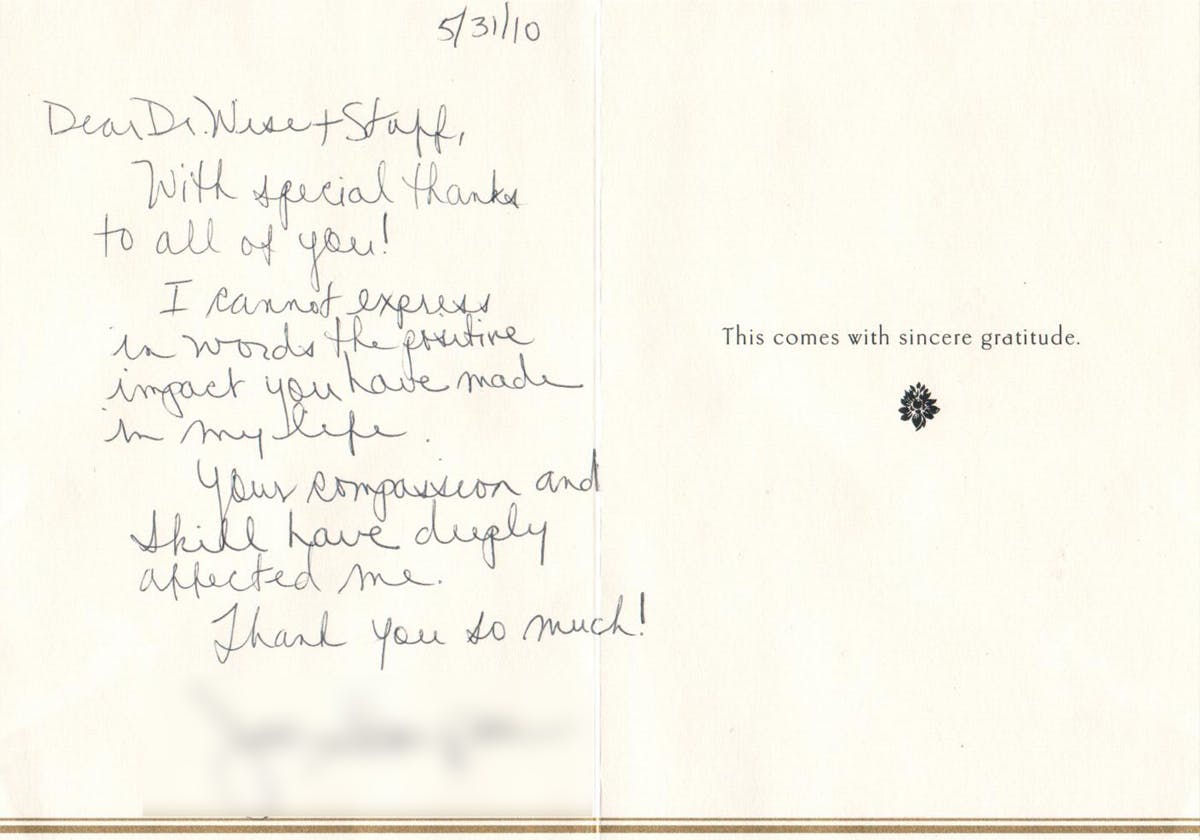 5/31/10
Dear Dr. Wise + Staff,
With special thanks
to all of you!
I cannot express
in words the positive
impact you have made
in my life.
Your compassion and
skill have deeply
affected me.
Thank you so much!
This comes with sincere gratitude.